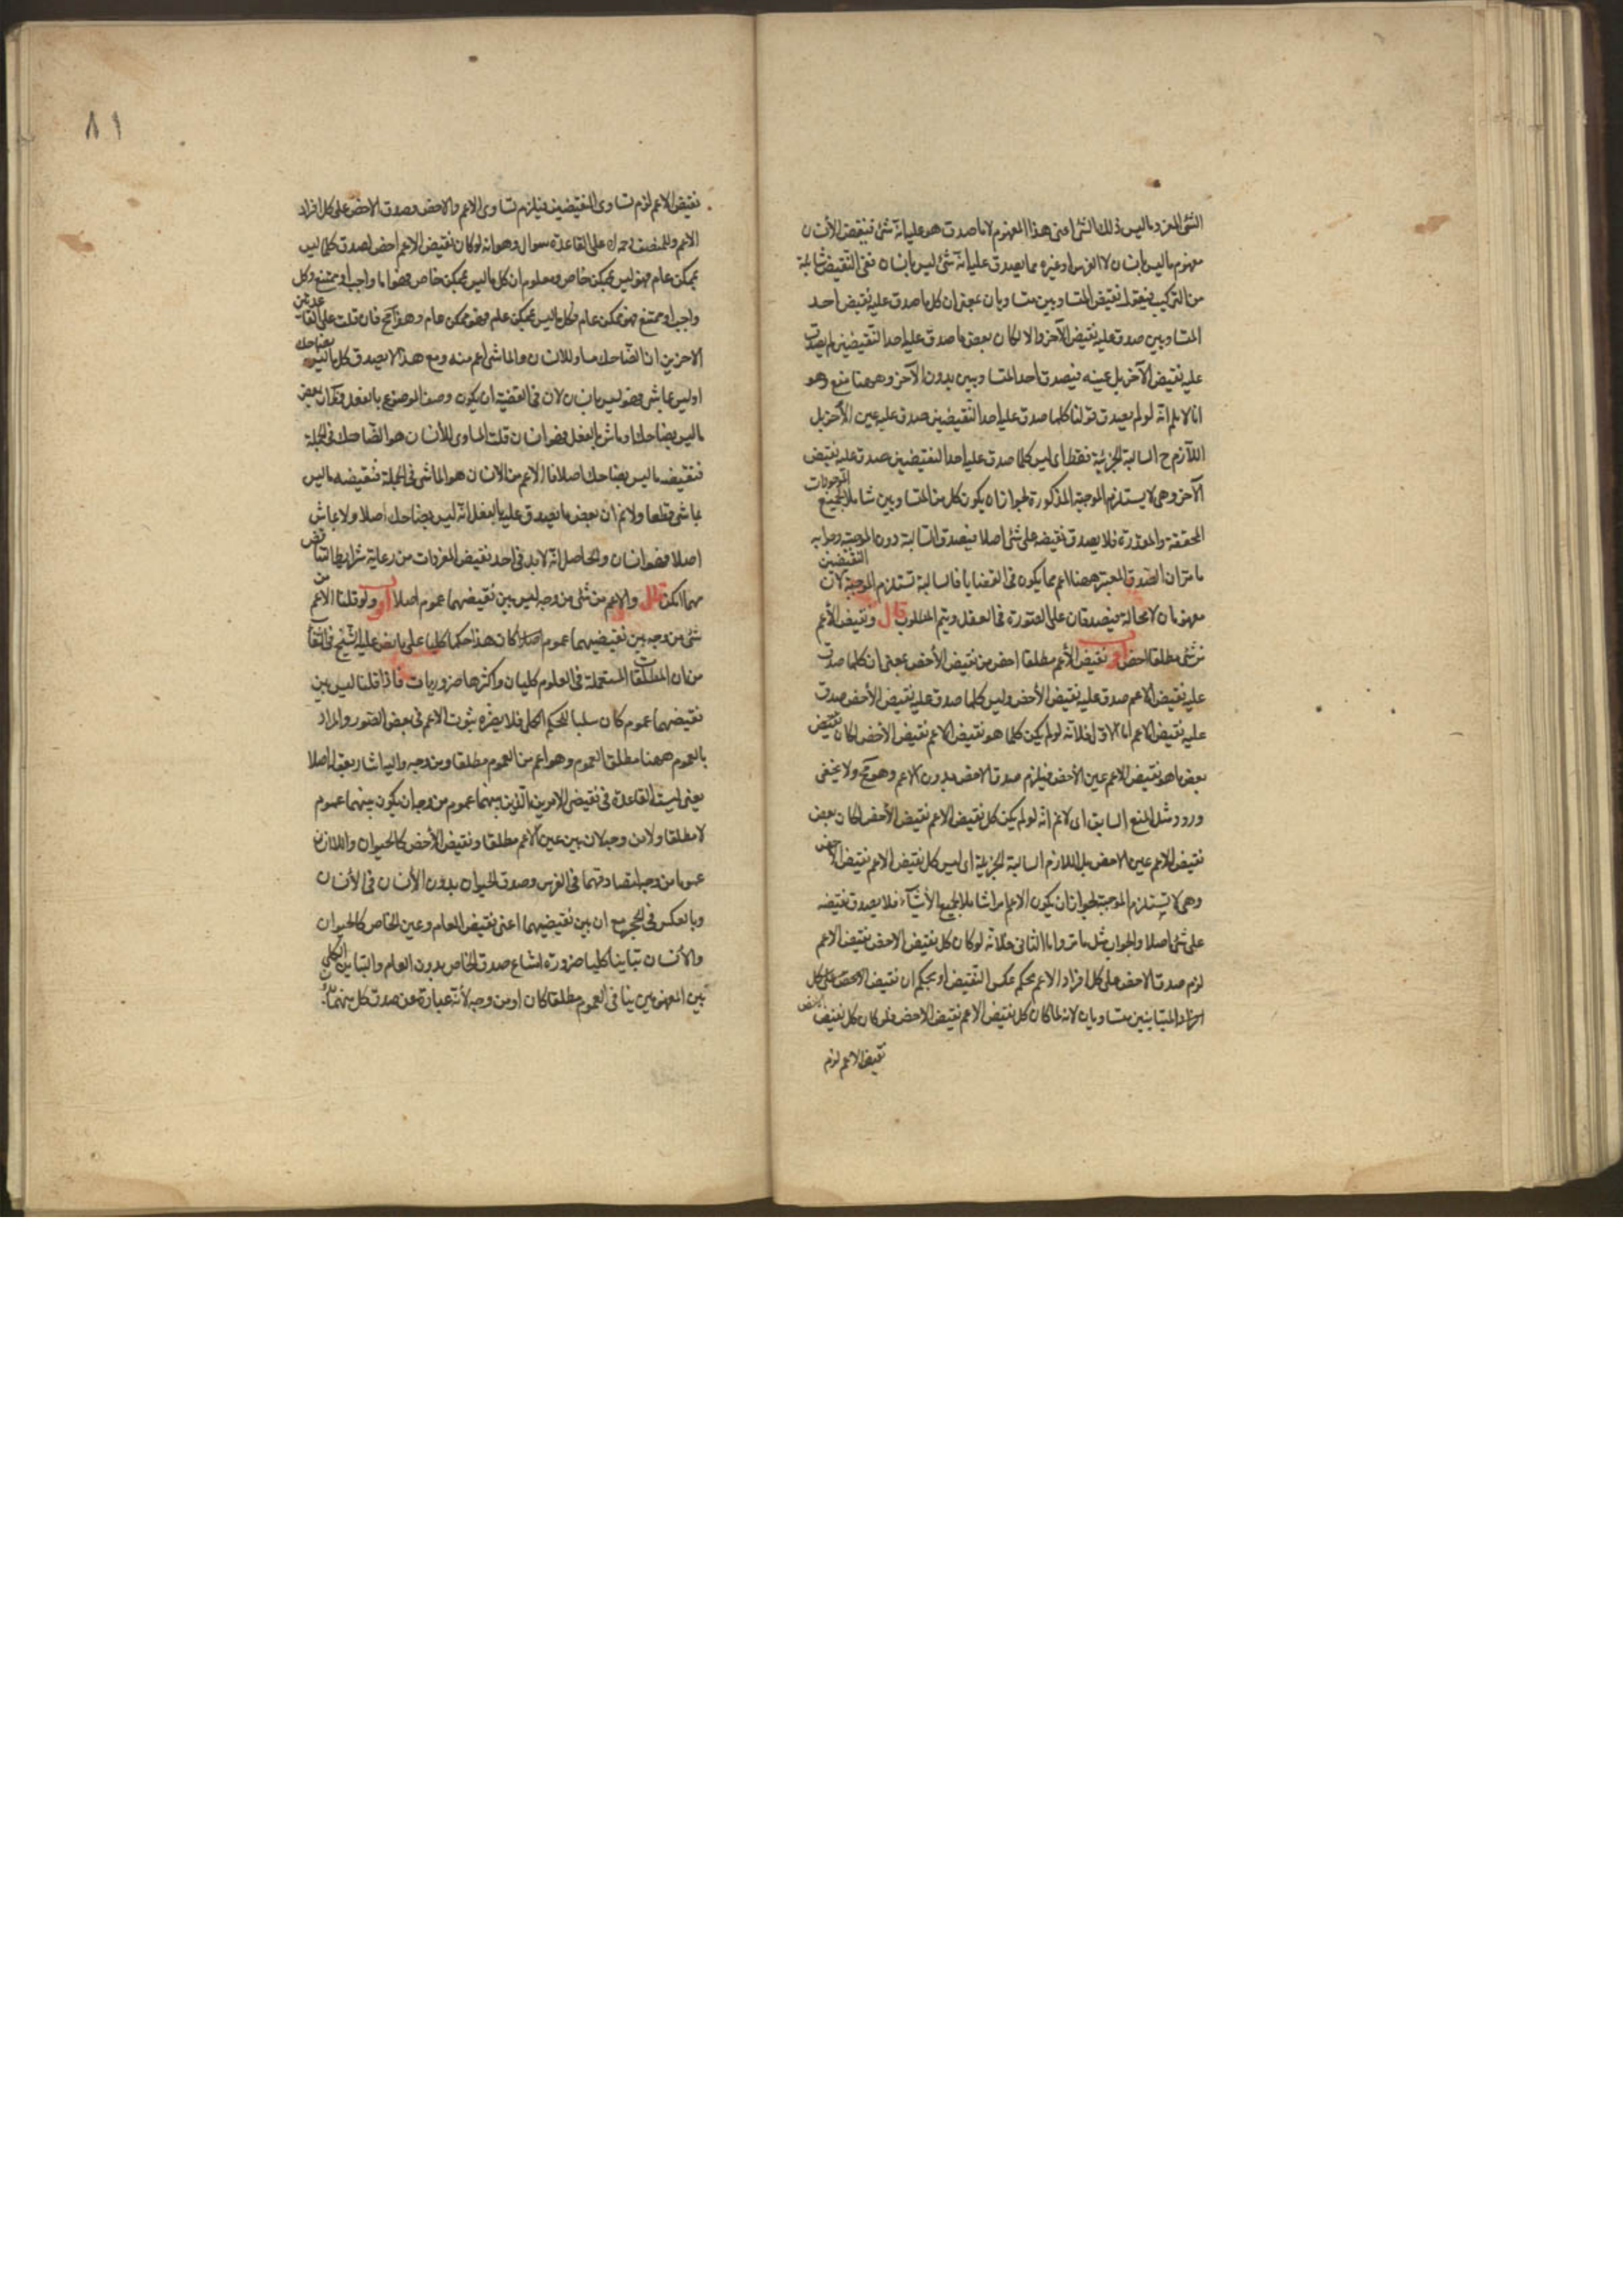 الشئ المفرد ما ليس ذلك الشئ اعنى هذا المفهوم لا ما صدق هو عليه انه شئ فنقيض الأنسان
مفهوم ما ليس بانسان لا الفرس او غيره مما يصدق عليه انه شئ ليس بانسان ففى النقيض شائبة
من التركيب فنقول نقيض المتساويين متساويان بمعنى ان كل ما صدق عليه نقيض احد
المتساويين صدق عليه نقيض الآخر والا لكان بعض ما صدق عليه احد النقيضين لم يصدق
عليه نقيض الآخر بل عينه فيصدق احد المتساويين بدون الآخر وههنا منع وهو
انا لا نعلم انه لو لم يصدق قولنا كلما صدق عليه احد النقيضين صدق عليه عين الآخر بل
اللازم ح السالبة الجزئية فقط اى ليس كلما صدق عليه احد النقيضين صدق عليه نقيض
الآخر وهى لا يستلزم الموجبة المذكورة لجواز ان يكون كل من المتساويين شاملا لجميع الموجودات
المحققة والمقدرة فلا يصدق نقيضه على شئ اصلا فيصدق السالبة دون الموجبة وجوابه
ما مر ان الصدق المعتبر ههنا اعم مما يكون فى القضايا فالسالبة تستلزم الموجبة لان النقيضين
مفهومان لا محالة فيصدقان على الصورة فى العقل ويتم المطلوب قال ونقيض الأعم
من شئ مطلقا اخص اقول نقيض الأعم مطلقا اخص من نقيض الأخص بمعنى ان كلما صدق
عليه نقيض الاعم صدق عليه نقيض الأخص وليس كلما صدق عليه نقيض الأخص صدق
عليه نقيض الاعم اما الاول فلانه لو لم يكن كلما هو نقيض الاعم نقيض الأخص لكان نقيض
بعض ما هو نقيض الاعم عين الأخص فيلزم صدق الاخص بدون الاعم وهو مح ولا يخفى
ورود مثل المنع السابق اى لا نم انه لو لم يكن كل نقيض الاعم نقيض الأخص لكان بعض
نقيض الاعم عين الاخص بل اللازم السالبة الجزئية اى ليس كل نقيض الاعم نقيض الاخص
وهى لا يستلزم الموجبة لجواز ان يكون الاعم امرا شاملا لجميع الأشياء فلا يصدق نقيضه
على شئ اصلا والجواب مثل ما مر واما الثانى فلانه لو كان كل نقيض الاخص نقيض الاعم
لزم صدق الاخص على كل افراد الاعم بحكم عكس النقيض او بحكم ان نقيض الاخص على كل
المتباينين متساويان لانه لما كان كل نقيض الاعم نقيض الاخص فلو كان كل نقيض الاخص
نقيض الاعم لزم
٨١
نقيض الاعم لزم تساوى النقيضين فيلزم تساوى الاعم والاخص وصدق الاخص على كل افراد
الاعم وللمنصف على القاعدة سوال وهو انه لو كان نقيض الاعم اخص لصدق كلما ليس
بممكن عام فهو ليس بممكن خاص ومعلوم ان كل ما ليس بممكن خاص فهو اما واجب او ممتنع وكل
واجب او ممتنع فهو ممكن عام فكل ما ليس بممكن عام فهو ممكن عام وهو مح فان قلت على القاعدتين
الاخرين ان الضاحك مساو للانسان والماشى اعم منه ومع هذا لا يصدق كل ما ليس بضاحك
او ليس بماشى فهو ليس بانسان لان فى القضية ان يكون وصف الموضوع بالفعل فكان بعض
ما ليس بضاحك او ماش بالفعل فهو انسان قلت المساوى للأنسان هو الضاحك فى الجملة
فنقيضه ما ليس بضاحك اصلا فالاعم من الانسان هو الماشى فى الجملة فنقيضه ما ليس
بماشى قطعا ولا نم ان بعض ما يصدق عليه بالفعل انه ليس بضاحك اصلا ولا بماش
اصلا فهو انسان والحاصل انه لابد فى احد نقيض المفردات من رعاية شرايط التناقض
مهما امكن قال والاعم من شئ من وجه ليس بين نقيضيهما عموم اصلا اقول ولو قلنا الاعم من
شئ من وجه بين نقيضيهما عموم اصلا كان هذا حكما كليا على ما نص عليه الشيخ فى الشفا
من ان المطلقات المستعملة فى العلوم كليات واكثرها ضروريات فاذا قلنا ليس بين
نقيضيهما عموم كان سلبا للحكم الكلى فلا يضره ثبوت الاعم فى بعض الصور والمراد
بالعموم ههنا مطلق العموم وهو اعم من العموم مطلقا ومن وجه واليه اشار بقوله اصلا
يعنى ليست القاعدة فى نقيضى الامرين الذين بينهما عموم من وجه ان يكون بينهما عموم
لا مطلقا ولا من وجه لان بين عين الاعم مطلقا ونقيض الأخص كالحيوان واللاانسان
عموما من وجه لتصادقهما فى الفرس وصدق الحيوان بدون الأنسان فى الأنسان
وبالعكس فى الحجر مع ان بين نقيضيهما اعنى نقيض العام وعين الخاص كالحيوان
والأنسان تباينا كليا ضرورة امتناع صدق الخاص بدون العام والتباين الكلى
بين المفهومين ينافى العموم مطلقا كان او من وجه لأنه عبارة عن صدق كل منهما